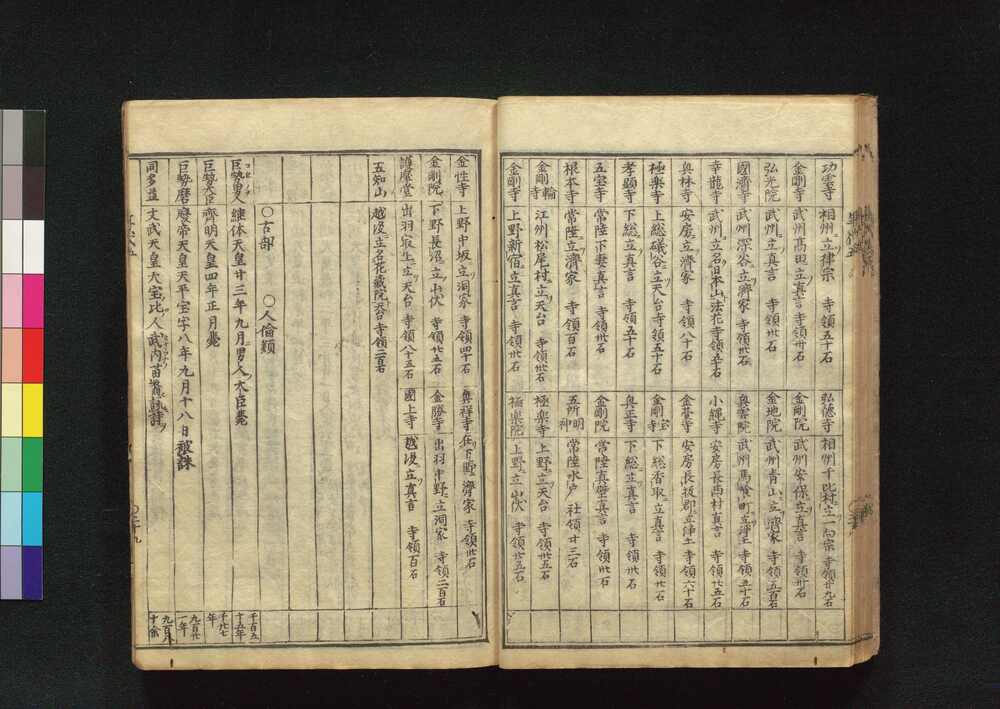 功雲寺 相州ニ立律宗 寺領五十石
金剛寺 武州高田ニ立真言 寺領卅石
弘光院 武州ニ立真言 寺領卅石
國濟寺 武州深谷ニ立濟家 寺領卅石
幸龍寺 武州ニ立名旧本山ニ法花寺領五十石
奥林寺 安房ニ立濟家 寺領八十石
極楽寺 上総礒谷ニ立天台寺領五十石
孝顕寺 下総ニ立真言 寺領五十石
五宝寺 常陸下妻真言 寺領卅石
根本寺 常陸ニ立濟家 寺領百石
金剛輪寺 江州松尾村ニ立天台 寺領卅石
金剛寺 上野新宿ニ立真言 寺領卅石
弘徳寺 相州千比村ニ立一向宗 寺領廿九石
金剛院 武州安保ニ立真言 寺領卅石
金地院 武州青山ニ立濟家 寺領五百石
奥雲院 武州馬喰町ニ立浄土 寺領五十石
小縄寺 安房長西村真言 寺領廿五石
金臺寺 安房長狭郡ニ立浄土 寺領六十石
金剛宝寺 下総香取ニ立真言 寺領廿石
真正寺 下総ニ立真言 寺領卅石
金剛院 常陸真壁ニ真言 寺領卅石
五所明神 常陸水戸 社領廿三石
極楽寺 上野ニ立天台 寺領卅五石
極楽院 上野ニ立山伏 寺領廿五石
金性寺 上野中坂ニ立洞家 寺領四十石
金剛院 下野長沼ニ立山伏 寺領廿五石
護摩堂 出羽寂上ニ立天台 寺領八十五石
五知山 越後ニ立名花蔵院天台 寺領二百石
真祥寺 在下野 濟家 寺領卅石
金勝寺 出羽中野ニ立洞家 寺領二百石
國上寺 越後ニ立真言 寺領百石
〇古部 〇人倫類
巨勢男人 継体天皇廿三年九月男人大臣薨
巨勢大臣 齊明天皇四年正月薨
巨勢麿 廢帝天皇天平宝字八年九月十八日被誅
同多益 文武天皇大宝比人武内苗裔
千百五十五年
千廿七年
九百廿一年
九百八十余